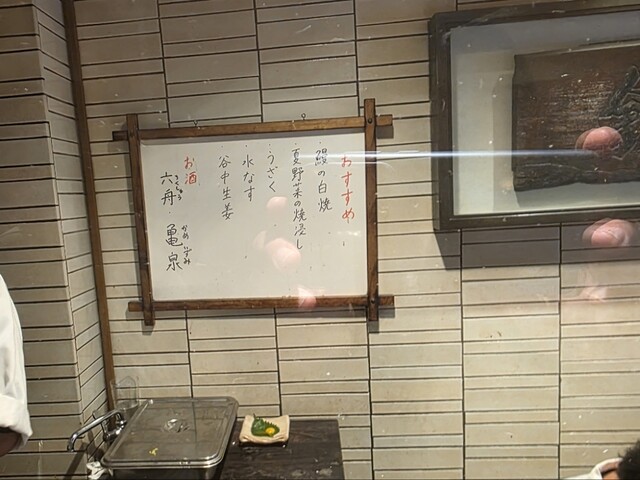 おすすめ
・鰻の白焼
・夏野菜の焼浸し
・うざく
・水なす
・谷中生姜
お酒
六舟・亀泉
かめいずみ